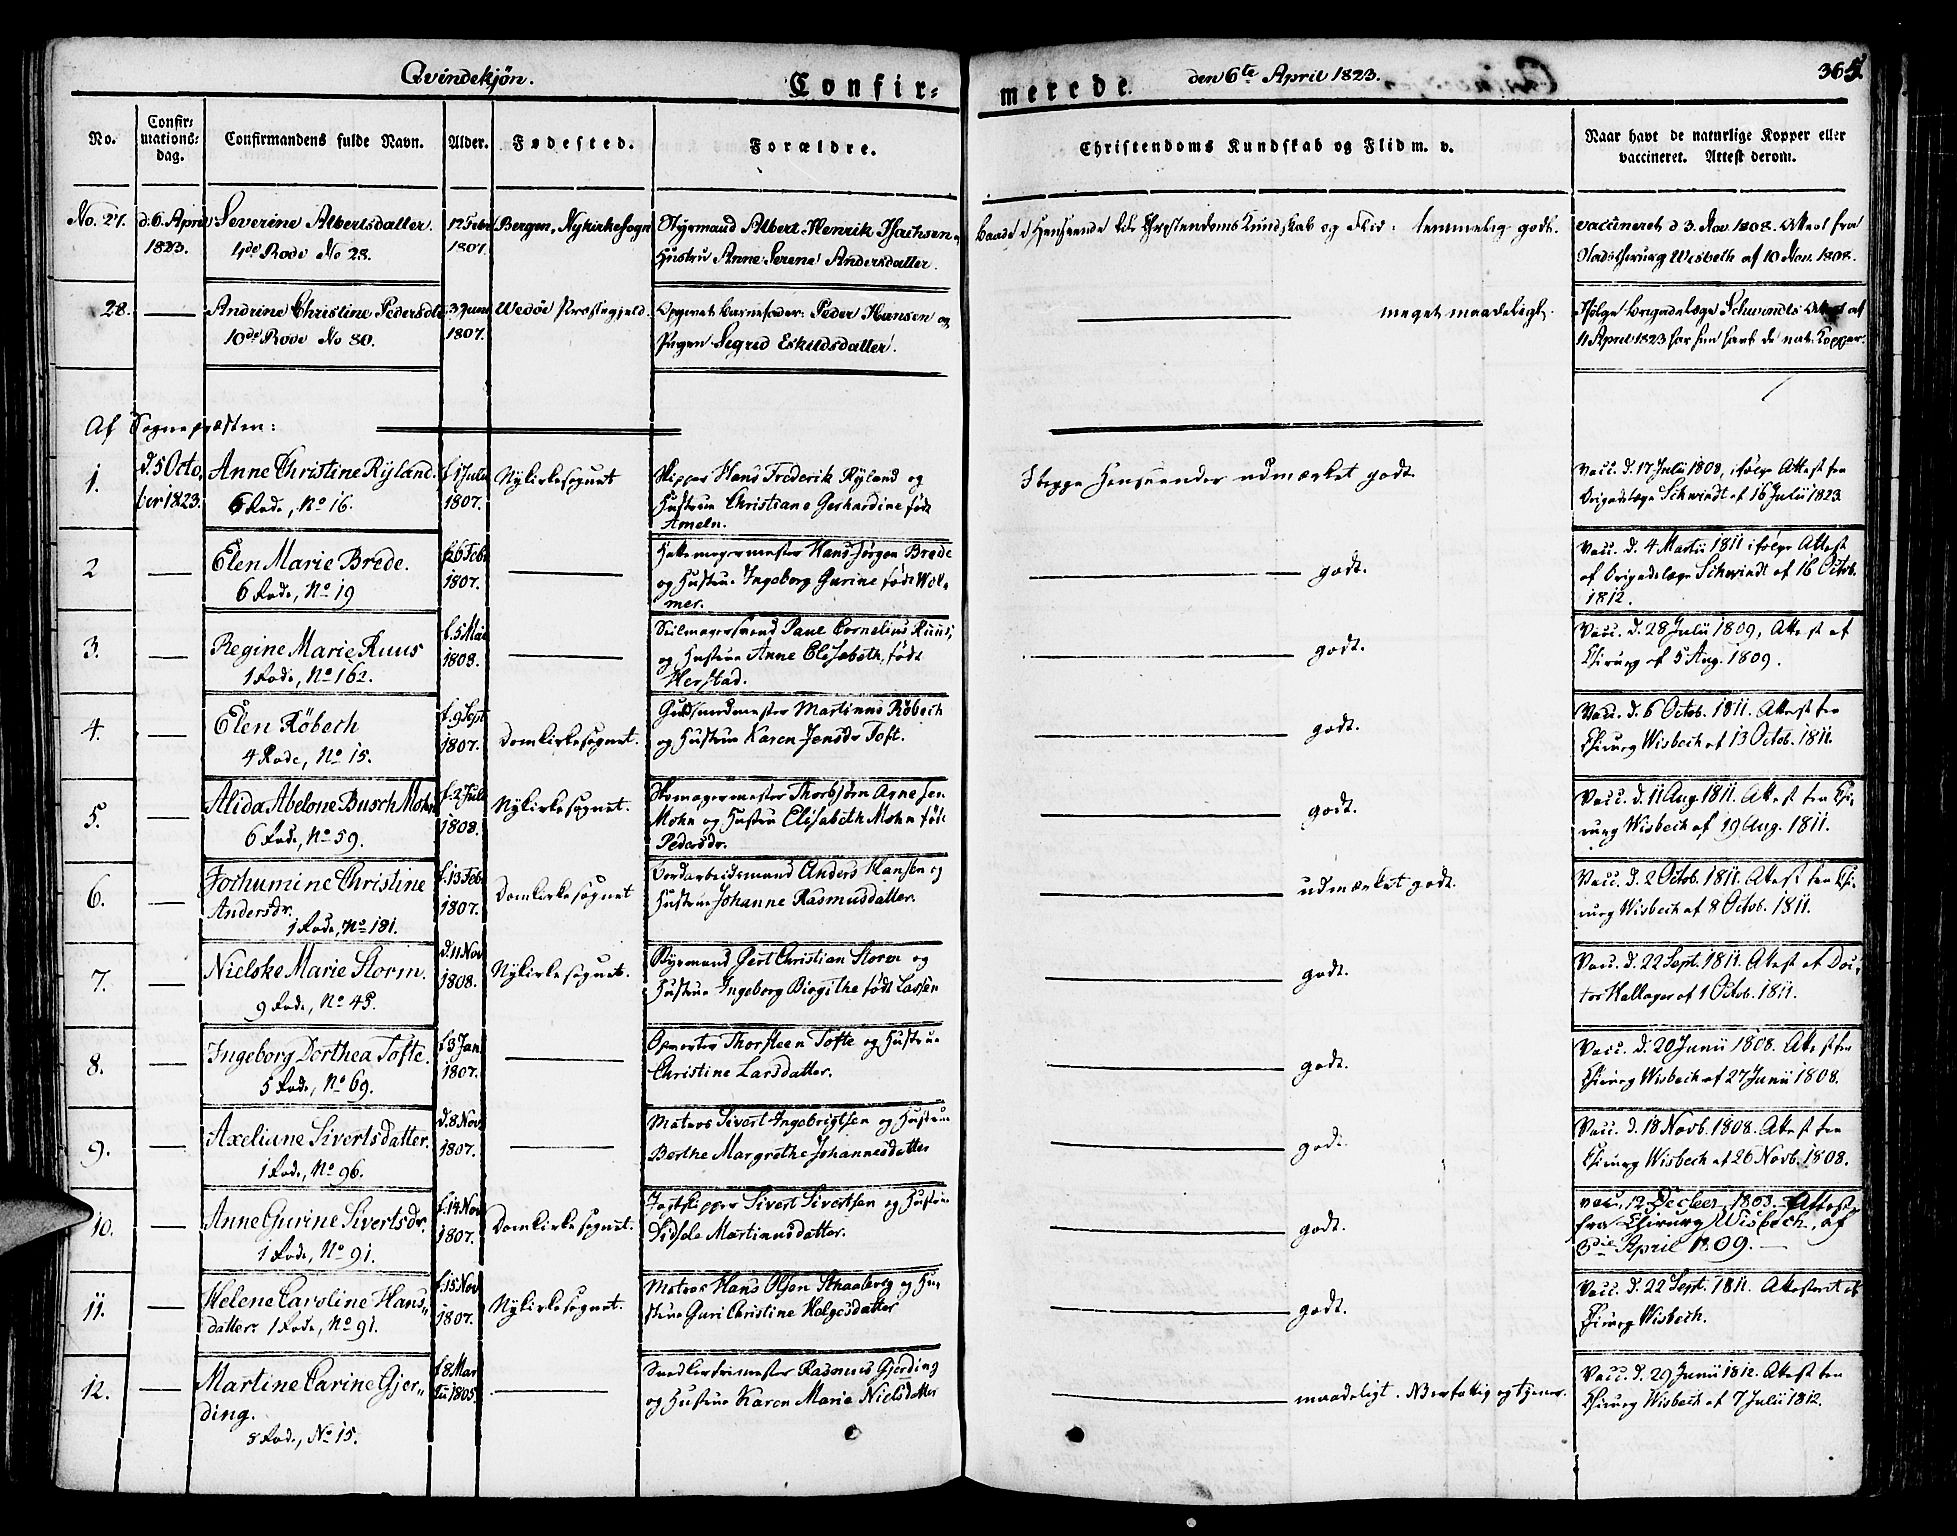 Qvindekjøn.
Confir-
merede.
den 6te April 1823.
365.
No.
Confir-
mations-
dag.
Confirmandens fulde Navn.
Alder.
Fødested.
Forældre.
Christendoms Kundskab og Flid m. v.
Naar havt de naturlige Kopper eller
vaccineret. Attest derom.
No. 27.
d. 6. April
1823.
Severine Albertsdatter.
4de Rode No 28.
12 Febr
1807.
Bergen, Nykirkesogn
Styrmand Albert Henrik Isachsen
Hustru Anne Serene Andersdatter.
baade i Henseende til Christendoms Kundskab og Flid: temmelig godt.
vaccineret d 3. Nov. 1808. Attest fra
Stadschirurg Wisbech af 10 Nov. 1808.
28.
Andrine Christine Pedersdtr
10de Rode No 80.
3 Juni
1807.
Wedøe Præstegjeld.
Opgivet barnefader: Peder Hansen og
Pigen Sigrid Eskildsdatter.
meget maadeligt.
Ifølge Brigadelæge Schwindts Attest af
11 April 1823 har hun havt de nat. Kopper.
Af Sognepræsten:
1.
d. 5 Octo,
ber 1823.
Anne Christine Ryland.
6 Rode, No 16.
f. 1 Julii
1807.
Nykirkesognet
Skipper Hans Frederik Ryland og
Hustrue Christiane Gerhardine født
Ameln.
I begge Henseender udmærket godt.
Vacc. d. 17 Julii 1808, ifølge Attest fra
Brigadelæge Schwindt af 16 Julii 1823.
2
Elen Marie Brede.
6 Rode, No 19
f. 26 Febr
1807.
Hattemagermester Hans Jørgen Brede
og Hustrue Ingeborg Gurine født Wol-
mer.
godt.
Vacc. d. 4 Martii 1811 ifølge Attest
af Brigadelæge Schwindt af 16 Octob.
1812.
3.
Regine Marie Ruus
1 Rode, No 162.
f. 5 Mai
1808.
Seilmagersvend Paul Cornelius Ruus,
og Hustrue Anne Elisabeth, født
Herstad.
godt.
Vacc. d. 28 Julii 1809, Attest af
Chirurg af 5 Aug. 1809.
4.
Elen Röbech
4 Rode, No 15.
f. 9 Sept
1807.
Domkirkesognet.
Guldsmedmester Martinus Röbech
og Hustrue Karen Jensdr Toft.
godt.
Vacc. d. 6 Octob. 1811. Attest fra
Chirurg Wisbech af 13 Octob. 1811.
5.
Alida Abelone Busch Mohn
6 Rode, No 59.
f. 2 Julii
1808.
Nykirkesognet.
Skomagermester Thorbjørn Agnesen
Mohn og Hustrue Elisabeth Mohn født
Pedersdr.
godt.
Vacc. d. 11 Aug. 1811. Attest fra Chi-
rurg Wisbech af 19 Aug. 1811.
6.
Jochumine Christine
Andersdr.
1 Rode, No 181.
f. 13 Feb
1807.
Domkirkesognet
Jordarbeidsmand Anders Hansen og
Hustrue Johanne Rasmusdatter.
udmærket godt.
Vacc. d. 2 Octob. 1811. Attest fra Chi-
rurg Wisbech af 8 Octob. 1811.
7.
Nielske Marie Storm.
9 Rode, No 45.
d. 11 Nov
1808.
Nykirkesognet.
Styrmand Gert Christian Storm og
Hustrue Ingeborg Birgithe født Lassen
godt.
Vacc. d. 22 Sept. 1811. Attest af Doc-
tor Hallager af 1 Octob. 1811.
8.
Ingeborg Dorthea Tofte.
5 Rode, No 69.
f. 3 Jan
1807.
Thorsteen Tofte og Hustrue
Christine Larsdatter.
godt.
Vacc. d. 20 Junii 1808. Attest fra
Chirurg Wisbech af 27 Junii 1808.
9.
Axeliane Sivertsdatter.
1 Rode, No 96.
d. 8 Nov
1807.
Matros Sivert Ingebrigtsen og Hustrue
Berthe Margrethe Johannesdatter
godt.
Vacc. d. 18 Novb. 1808. Attest fra
Chirurg Wisbech af 26 Novb. 1808.
10.
Anne Gurine Sivertsdr.
1 Rode, No 91.
f. 14 Nov
1807.
Domkirkesognet.
Jagtskipper Sivert Sivertsen og Hustrue
Didsele Martinusdatter.
godt.
vacc. 12 Decber 1808. Attest
fra Chirurg Wisbech, af
3die April 1809.
11.
Helene Caroline Hans,,
datter. 1 Rode, No 91.
f. 15 Nov
1807.
Nykirkesognet.
Matros Hans Olsen Skaalevig og Hu-
strue Guri Christine Helgesdatter
godt.
Vacc. d. 22 Sept. 1811. Attesteret af
Chirurg Wisbech.
12.
Martine Carine Gjer,,
ding.
8 Rode, No 15.
f. 8 Mar
tii 1805.
Snedkermester Rasmus Gjerding
og Hustrue Karen Marie Nielsdatter
maadeligt. Nærfattig og tjener.
Vacc. d. 29 Junii 1812. Attest fra
Chirurg Wisbech af 7 Julii 1812.